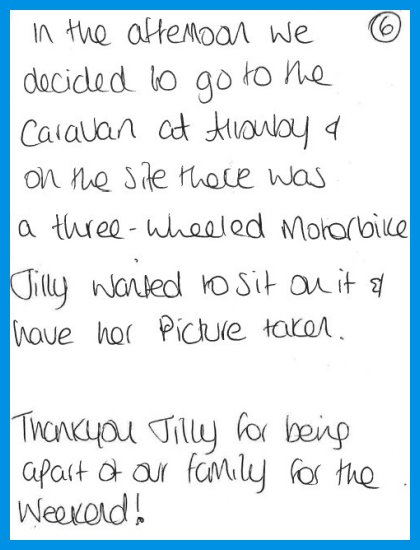 In the afternoon we ⑥
decided to go to the
Caravan at thornby &
on the site there was
a three-wheeled Motorbike
Jilly wanted to sit on it &
have her Picture taken.
Thankyou Jilly for being
apart of our family for the
Weekend!